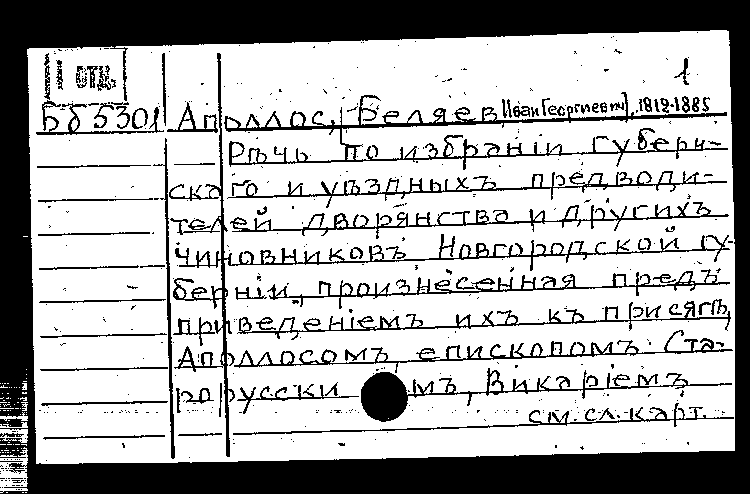 II отд.
1
Бб 5301 Аполлос, [Беляев, Иван Георгиевич], 1812-1885
Рѣчь по избраніи губерн-
скаго и уѣздныхъ предводи-
телей дворянства и другихъ
чиновниковъ Новгородской гу-
берніи, произнесенная предъ
приведеніемъ ихъ къ присягѣ,
Аполлосомъ, епископомъ Ста-
рорусски мъ, Викаріемъ
см. сл. карт.